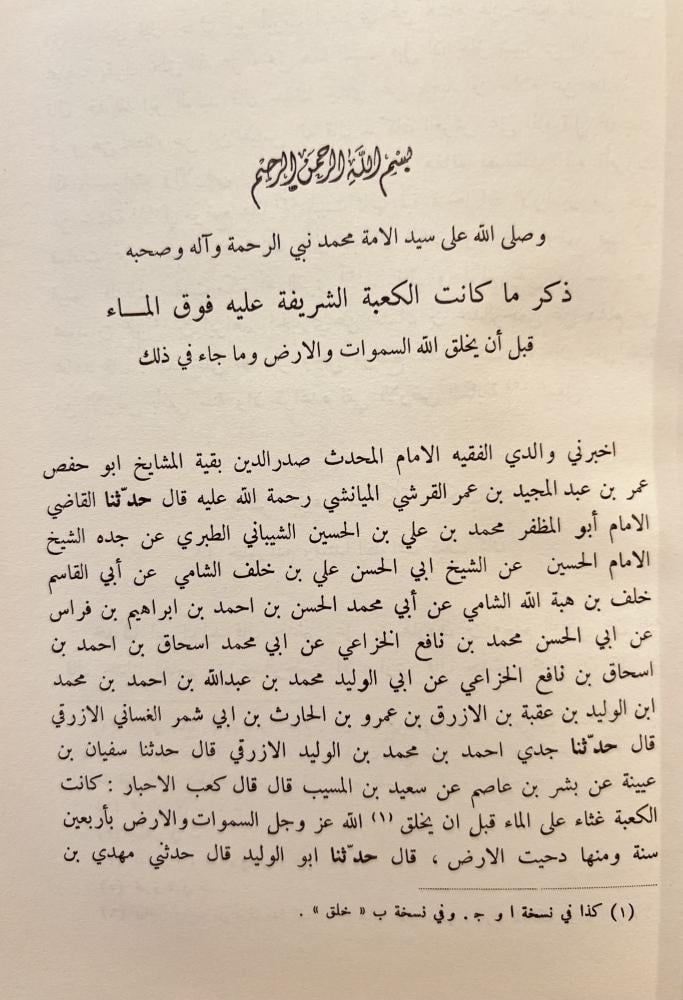 بسم الله الرحمن الرحيم
وصلى الله على سيد الامة محمد نبي الرحمة وآله وصحبه
ذكر ما كانت الكعبة الشريفة عليه فوق المـــاء
قبل أن يخلق الله السموات والارض وما جاء في ذلك
اخبرني والدي الفقيه الامام المحدث صدرالدين بقية المشايخ ابو حفص
عمر بن عبد المجيد بن عمر القرشي الميانشي رحمة الله عليه قال حدّثنا القاضي
الامام أبو المظفر محمد بن علي بن الحسين الشيباني الطبري عن جده الشيخ
الامام الحسين عن الشيخ ابي الحسن علي بن خلف الشامي عن أبي القاسم
خلف بن هبة الله الشامي عن أبي محمد الحسن بن احمد بن ابراهيم بن فراس
عن ابي الحسن محمد بن نافع الخزاعي عن ابي محمد اسحاق بن احمد بن
اسحاق بن نافع الخزاعي عن ابي الوليد محمد بن عبدالله بن احمد بن محمد
ابن الوليد بن عقبة بن الازرق بن عمرو بن الحارث بن ابي شمر الغساني الازرقي
قال حدّثنا جدي احمد بن محمد بن الوليد الازرقي قال حدثنا سفيان بن
عيينة عن بشر بن عاصم عن سعيد بن المسيب قال قال كعب الاحبار : كانت
الكعبة غثاء على الماء قبل ان يخلق (١) الله عز وجل السموات والارض بأربعين
سنة ومنها دحيت الارض ، قال حدّثنا ابو الوليد قال حدثني مهدي بن
(١) كذا في نسخة ا و جـ . وفي نسخة ب « خلق » .